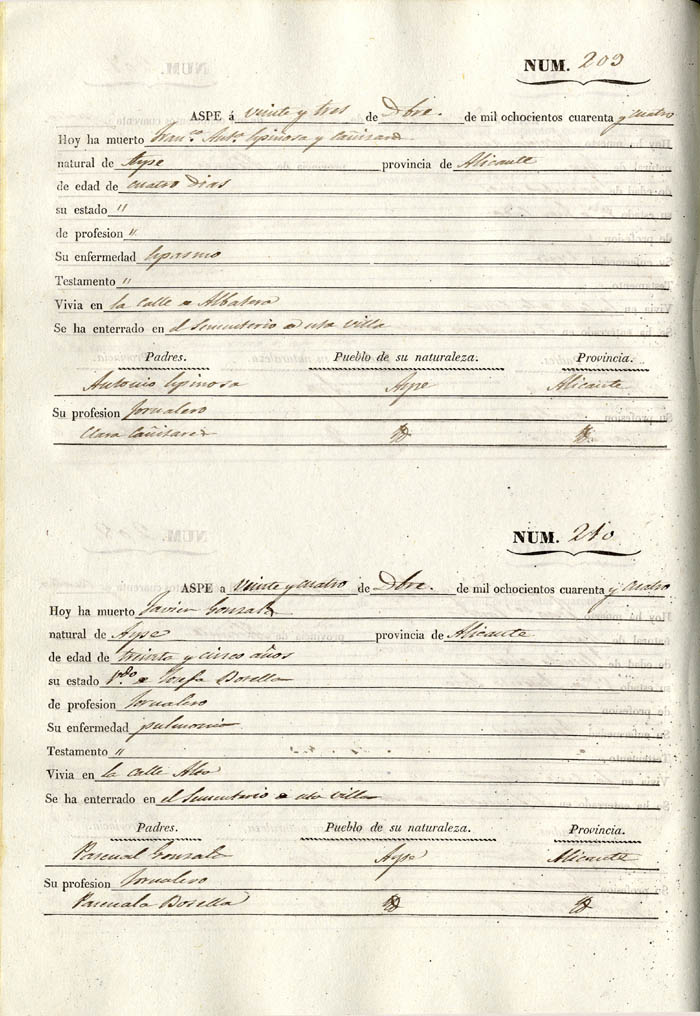 NUM. 209
ASPE á veinte y tres de Dbre. de mil ochocientos cuarenta y cuatro
Hoy ha muerto Fran.co Ant.o Espinosa y Cañizares
natural de Aspe provincia de Alicante
de edad de cuatro dias
su estado "
de profesion "
Su enfermedad espasmo
Testamento "
Vivia en la calle de Albatera
Se ha enterrado en el Sementerio de esta villa
Padres. Pueblo de su naturaleza. Provincia.
Antonio Espinosa Aspe Alicante
Su profesion Jornalero
Clara Cañizares
NUM. 210
ASPE a veinte y cuatro de Dbre. de mil ochocientos cuarenta y cuatro
Hoy ha muerto Javier Gonzalez
natural de Aspe provincia de Alicante
de edad de treinta y cinco años
su estado de Josefa Botella
de profesion Jornalero
Su enfermedad pulmonia
Testamento "
Vivia en la calle Alta
Se ha enterrado en el Sementerio de esta villa
Padres. Pueblo de su naturaleza. Provincia.
Pascual Gonzalez Aspe Alicante
Su profesion Jornalero
Pascuala Botella